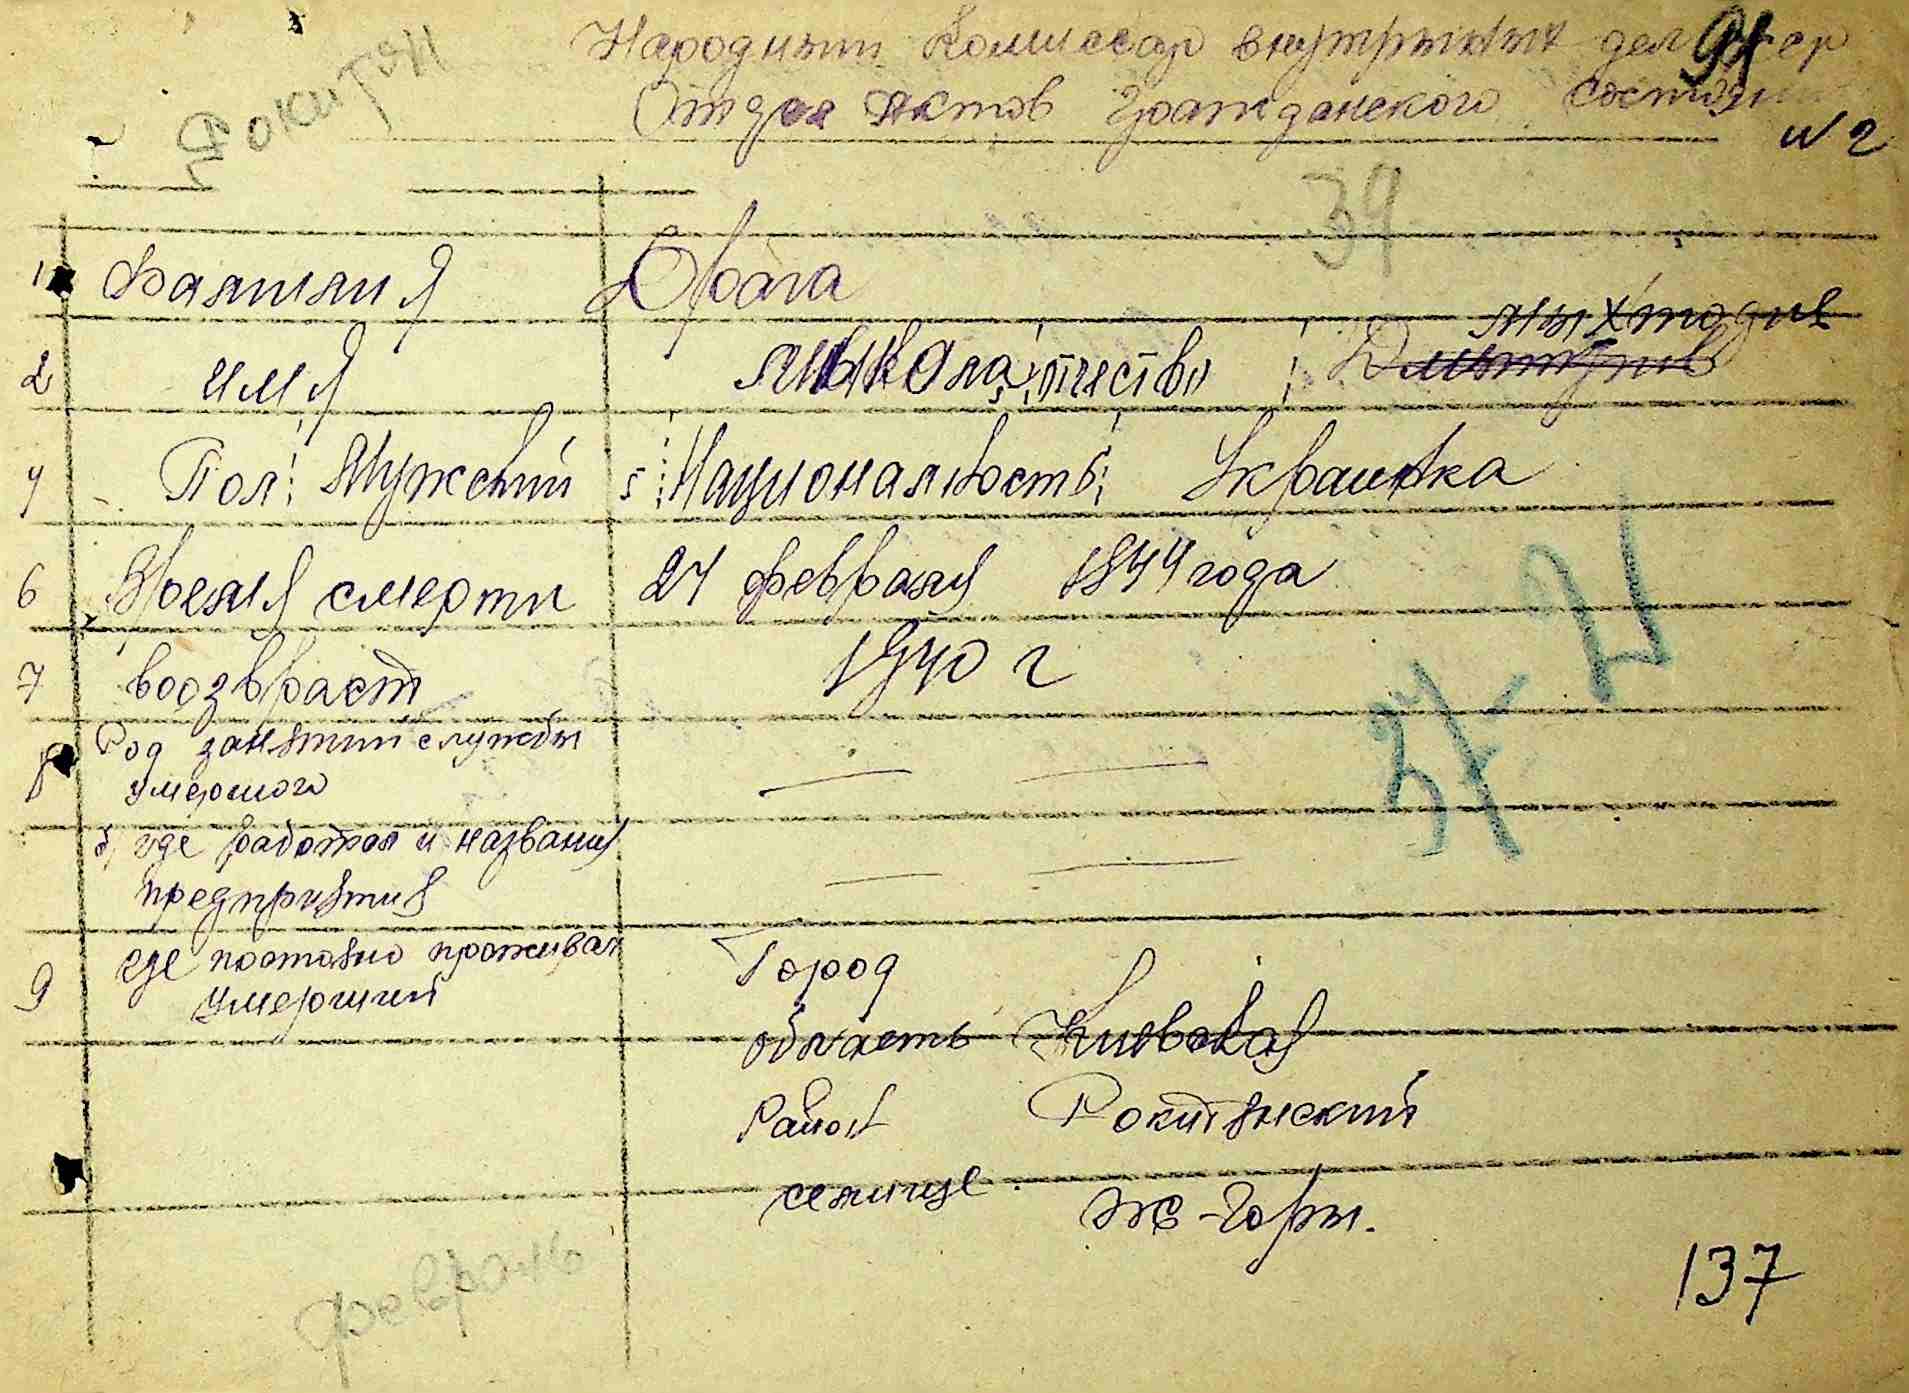 Рокитян
Народный Комиссар внутриных дел
Отдел Актов Гражданского состояния
N 2
39
1 Фамилия Драга
Мыхтодия
2 имя Мыкола отчество Дмытрив
4 Пол Мужский 5 Национальность Украинка
6 Время смерти 27 февраля 1944 года
7 воозвраст 1940 г
8 Род занятий службы
умершого
б) где работал и названия
предприятия
9 где постояно проживал
умерший
Город
область Киевская
Район Рокитянский
селище Ж-Горы.
37-21
февраль
137